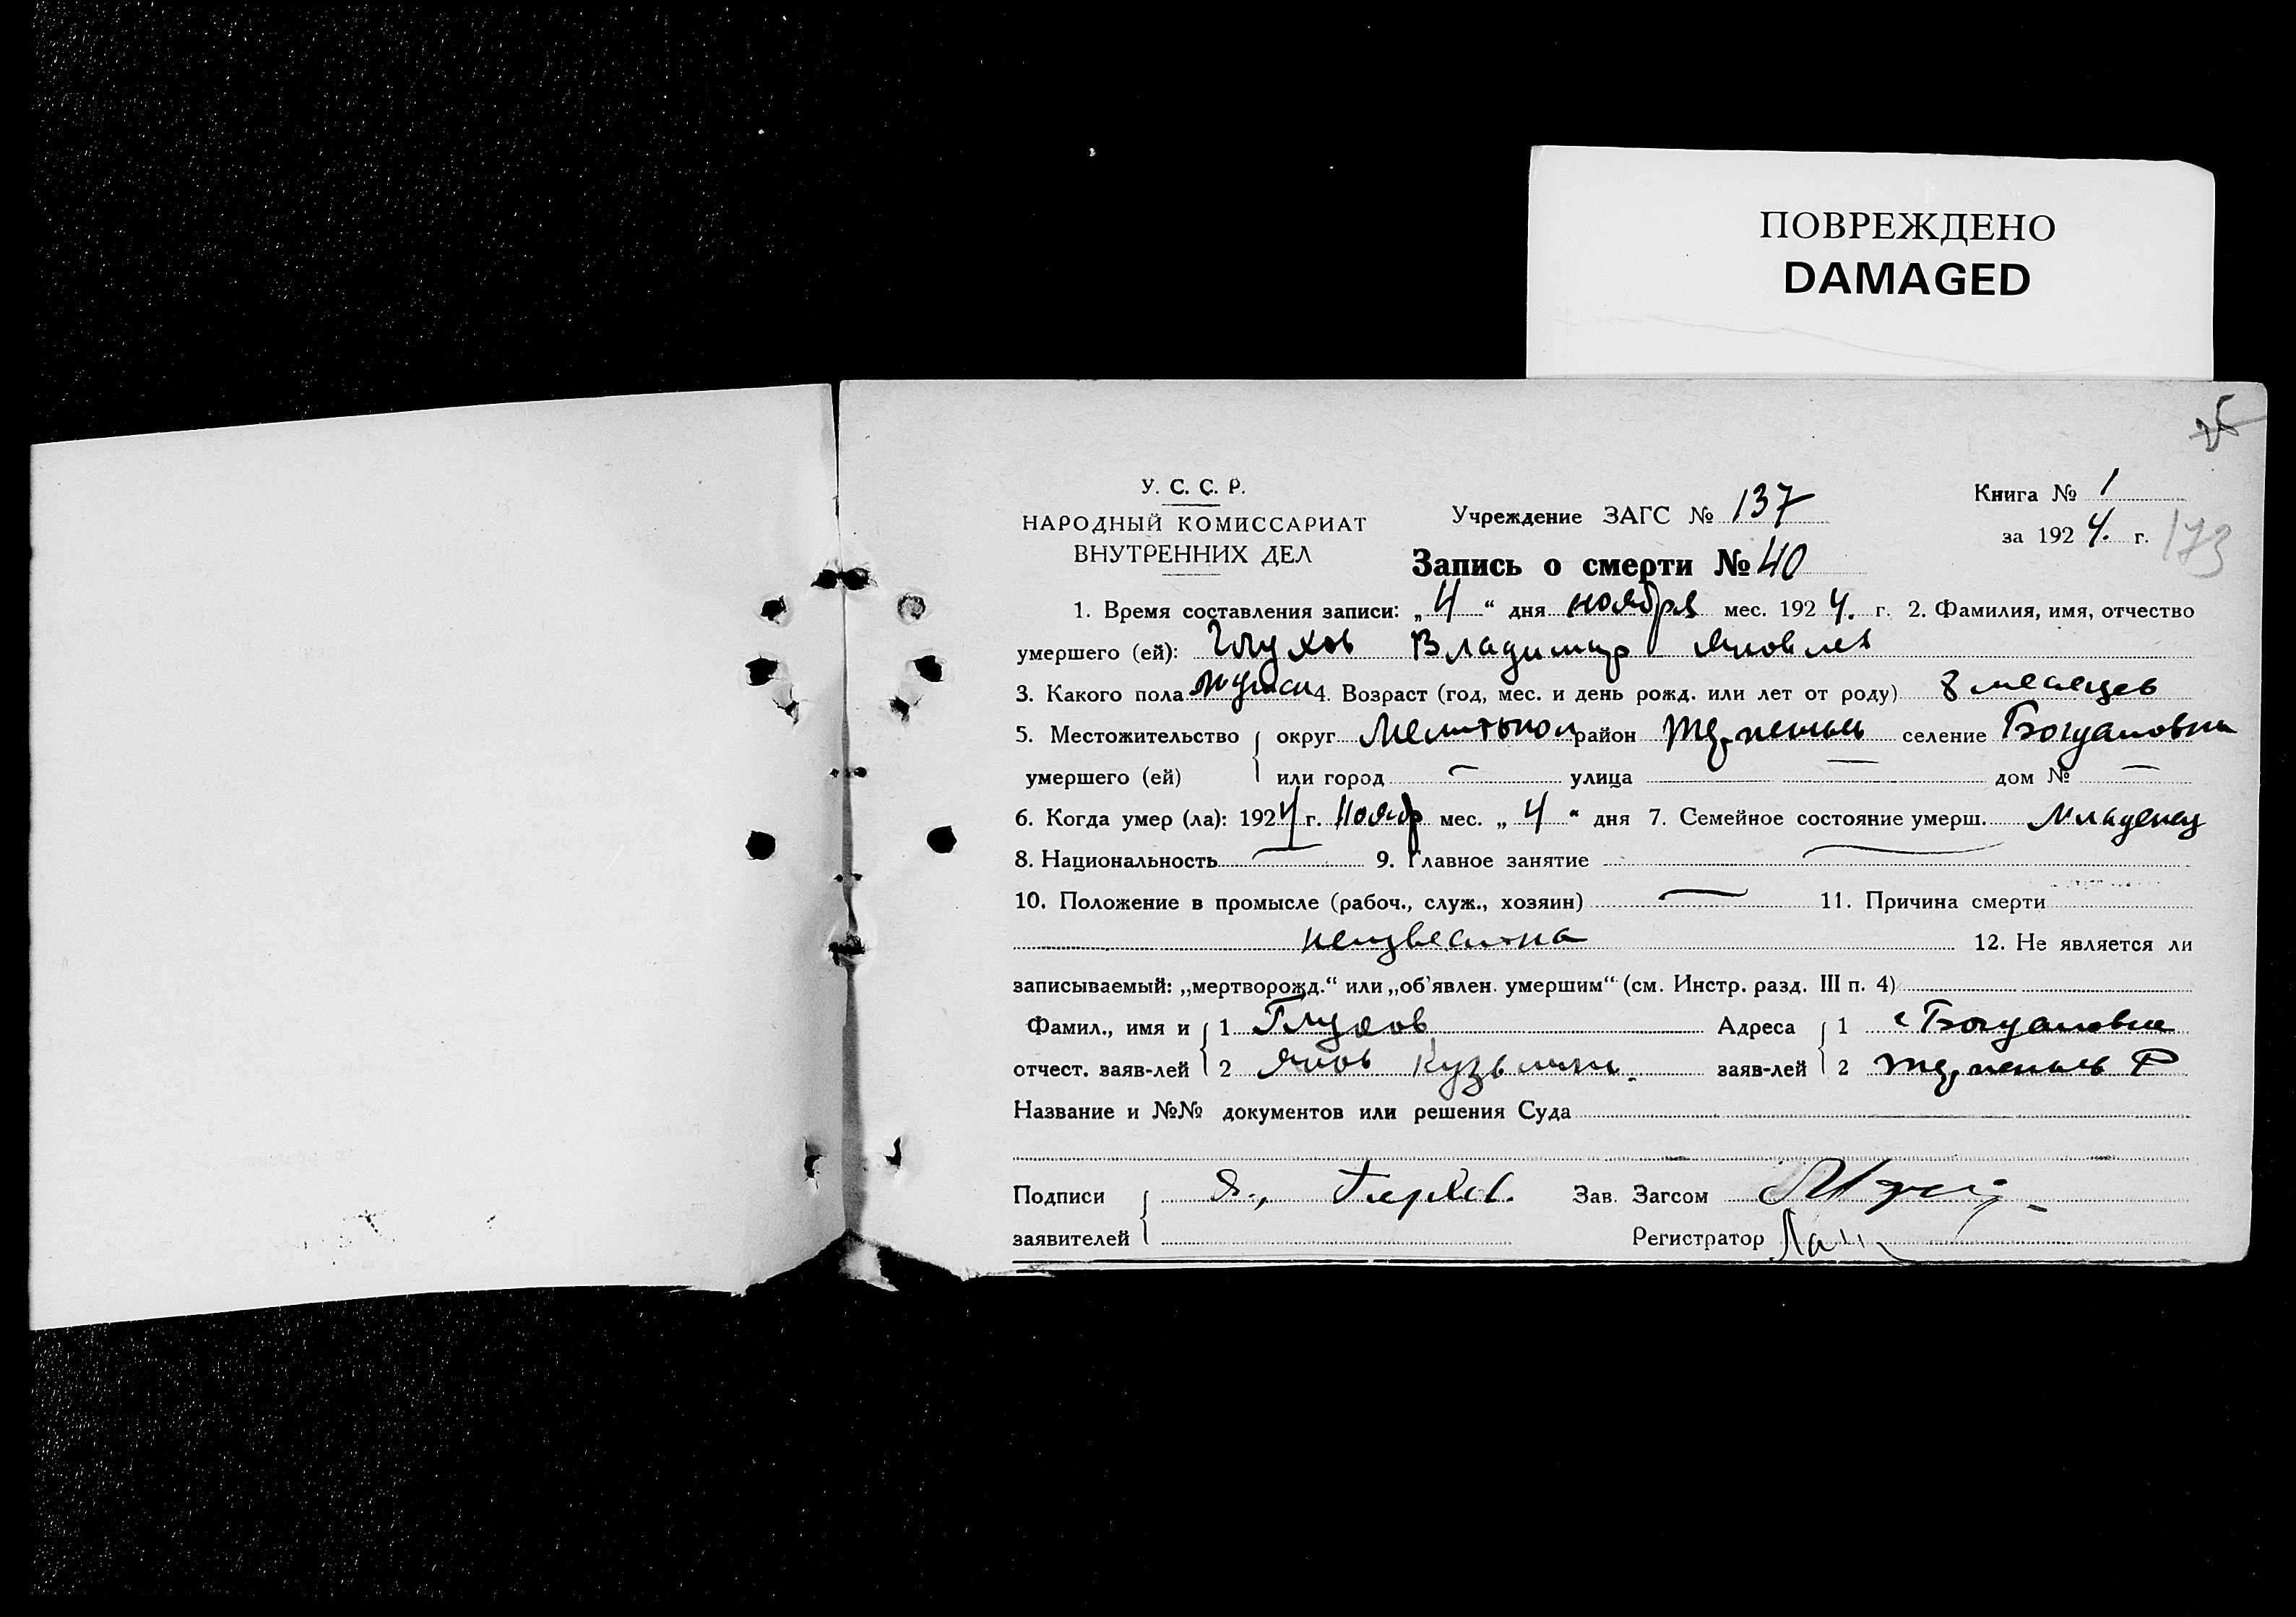 ПОВРЕЖДЕНО
DAMAGED
У. С. С. Р.
НАРОДНЫЙ КОМИССАРИАТ
ВНУТРЕННИХ ДЕЛ
Учреждение ЗАГС № 137
Книга № 1
за 1924. г.
173
Запись о смерти № 40
1. Время составления записи: „4“ дня ноября мес. 1924. г. 2. Фамилия, имя, отчество
умершего (ей): Глухов Владимир Яковлев
3. Какого пола мужск 4. Возраст (год, мес. и день рожд. или лет от роду) 8 месяцев
5. Местожительство округ Мелитопол район селение Богдановка
умершего (ей) или город — улица — дом № —
6. Когда умер (ла): 1924 г. Ноябр мес. „4“ дня 7. Семейное состояние умерш. Младенец
8. Национальность — 9. Главное занятие —
10. Положение в промысле (рабоч., служ., хозяин) — 11. Причина смерти
неизвестна 12. Не является ли
записываемый: „мертворожд.“ или „об'явлен. умершим“ (см. Инстр. разд. III п. 4)
Фамил., имя и 1 Глухов Адреса 1 с Богдановка
отчест. заяв-лей 2 Яков Кузьмич заяв-лей 2 Р
Название и №№ документов или решения Суда
Подписи Я., Глухов. Зав. Загсом
заявителей Регистратор